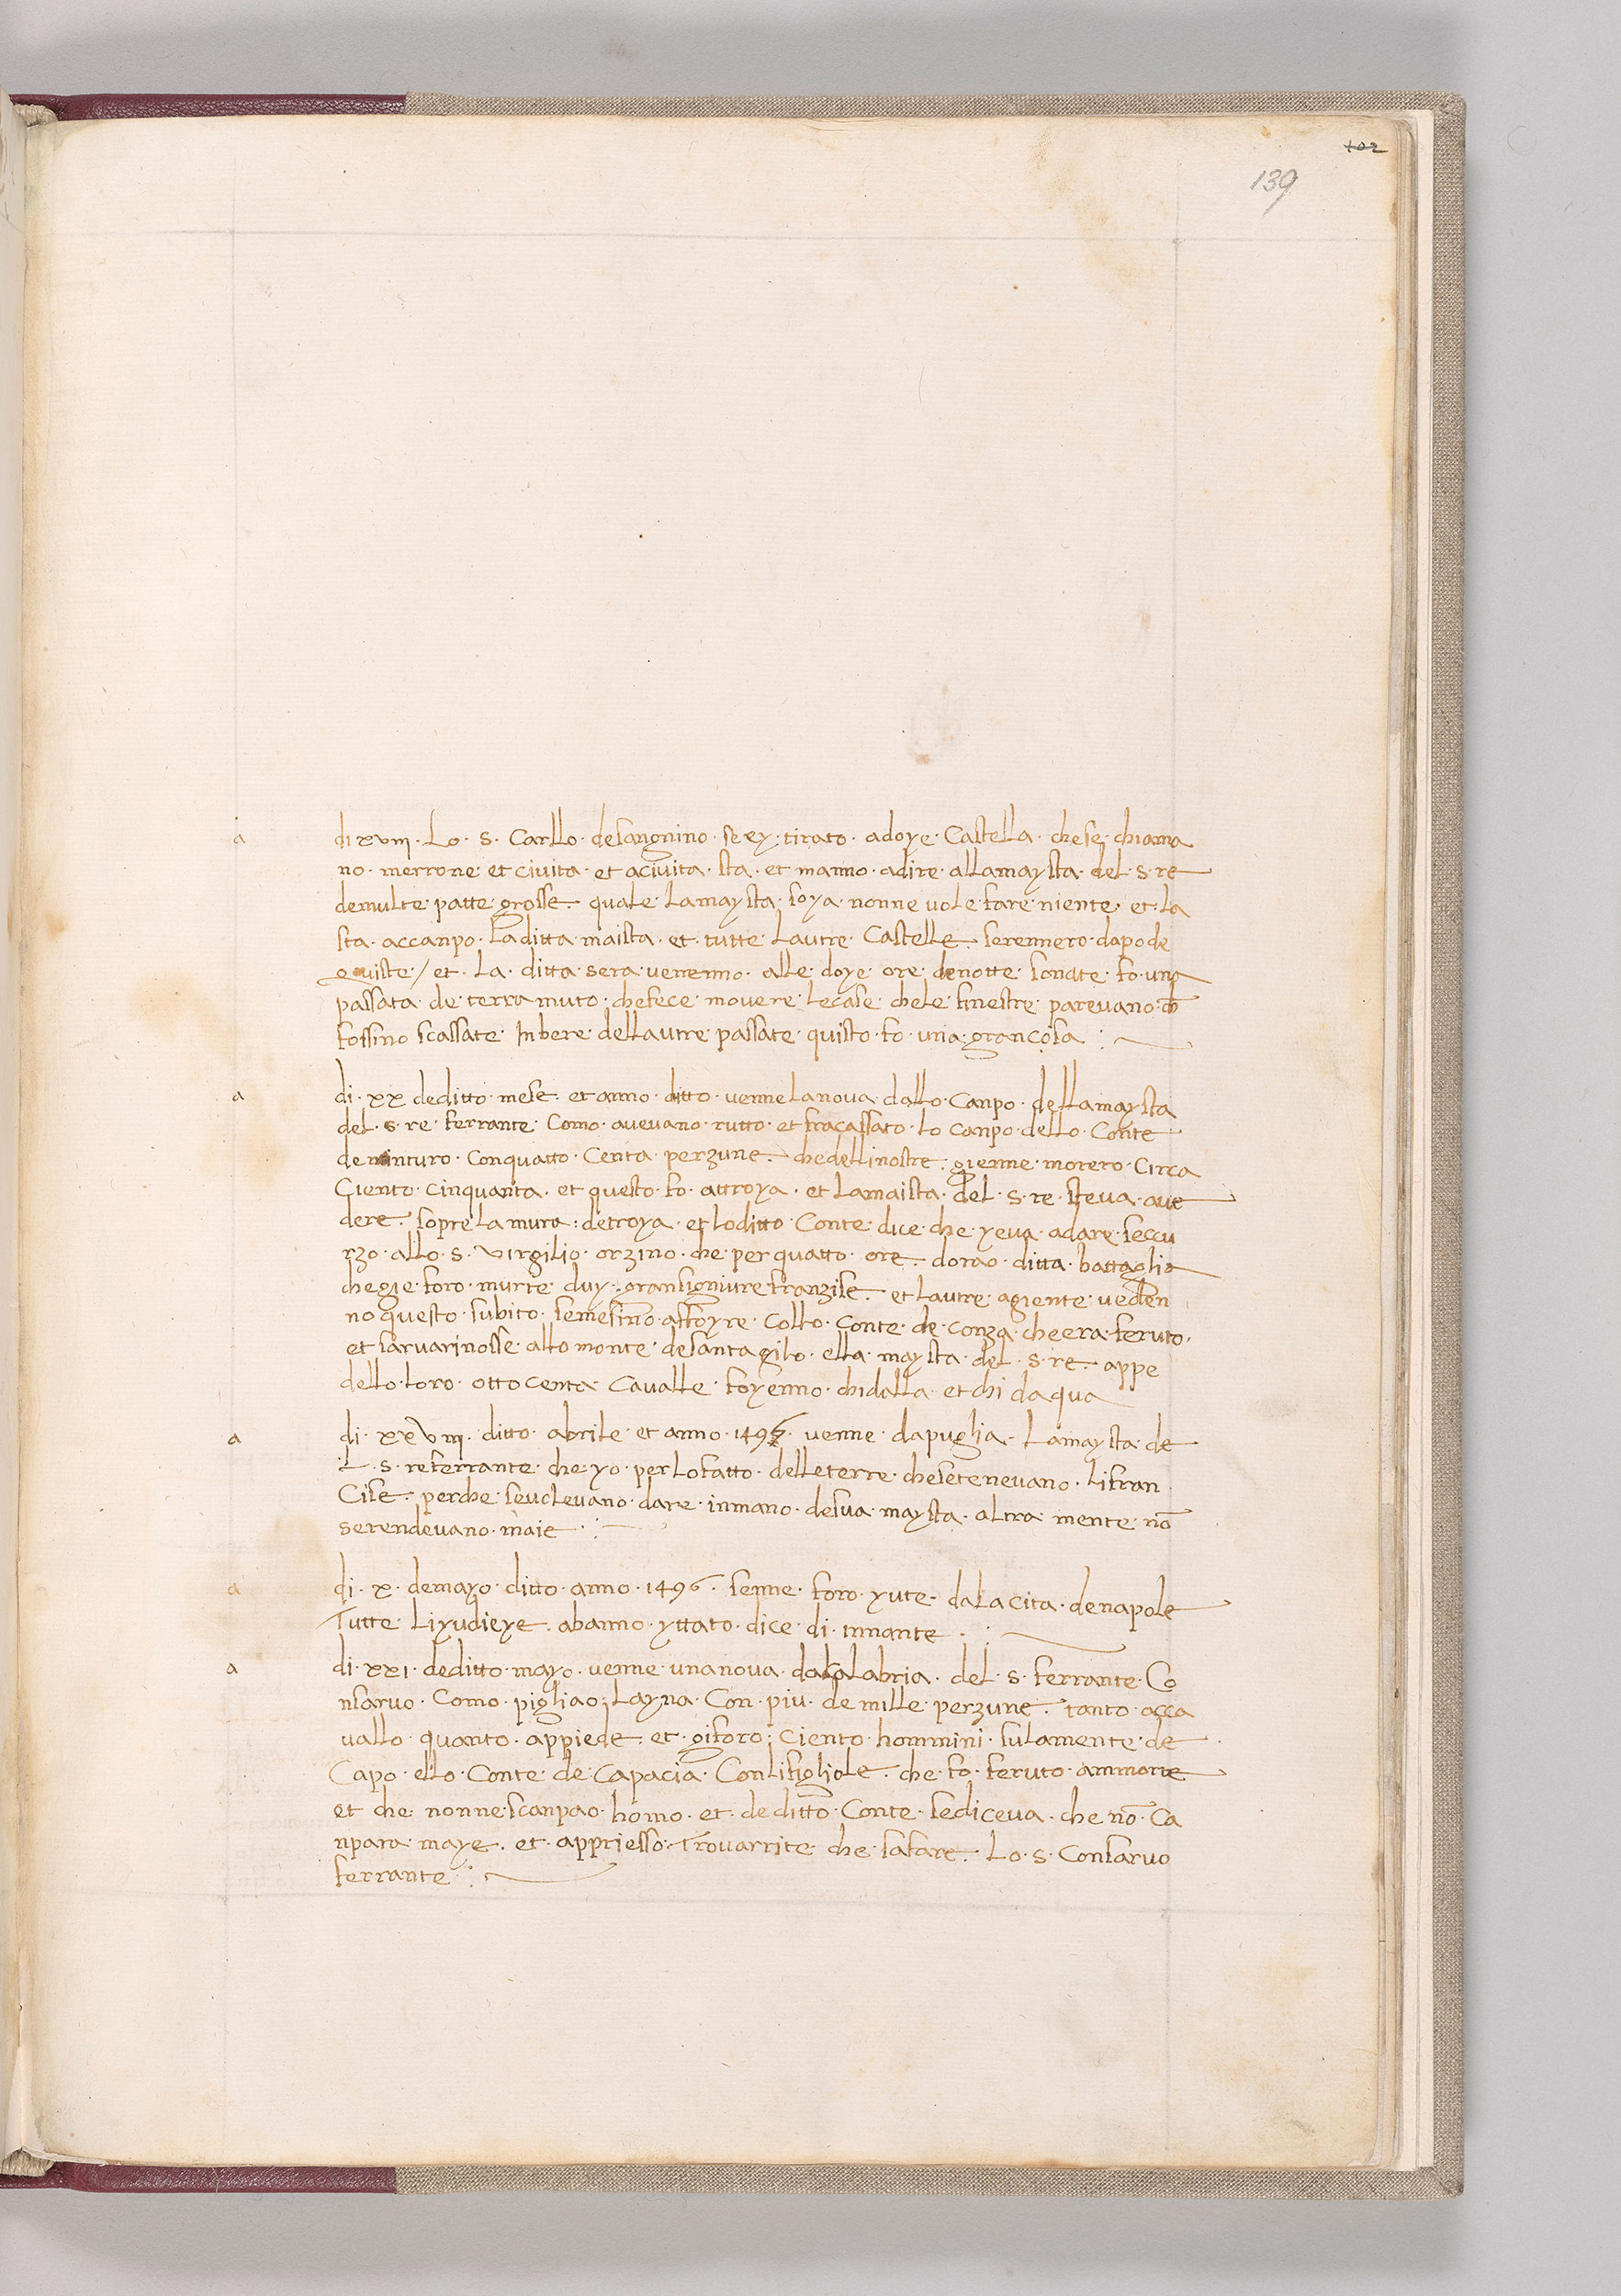 102
139
a di xviii. Lo. s. Carllo. desangnino. se ey. tirato. adoye. Castella. che se. chiama
no. merrone et civita. et acivita. sta. et manno. adire. alla maysta. del. s. re
de multe. patte. grosse. quale. la maysta. soya. nonne vole. fare. niente. et. la
sta. accanpo. La ditta. maista. et. tutte. Lautre. Castelle. serennero. dapo de
quiste / et. La. ditta. sera. venenno. alle. doye. ore. de notte. sonate. fo. una
passata. de. terra muto. che fece. movere. le case. che le. finestre. parevano. ch̄
fossino scassate. In bere. dellautre. passate. quisto. fo. una. gran cosa
a di. xx de ditto. mese. et anno. ditto. venne La nova. dallo. Canpo. della maysta
del. s. re. ferrante. Como. avevano. rutto. et fracassato. Lo canpo. dello. Conte
de minturo. Con quatto. Centa. perzune. che delli nostre. gienne. morero. Circa
Ciento. cinquanta. et questo. fo. attroya. et La maista. del. s. re. steva. ave
dere. sopre La mura. de troya. et lo ditto. Conte. dice. che. yeva. adare. seccu
rzo. allo. s. virgilio. orzino. che. per quatto. ore. dorao. ditta. battaglia
che gie. foro. murte. duy. gran signiure. franzise. et Lautre. agiente. veden
no questo. subito. se mesino. affoyre. Collo. Conte. de. conza. che era. feruto.
et sarvarinosse. allo monte. de santagilo. ella. maysta. del. s. re. appe
dello. loro. otto centa. Cavalle. foyenno. chi dalla. et chi da qua
a di. xxviii. ditto. abrile. et anno. 1496. venne. da puglia. La maysta. de
L. s. re ferrante. che. yo. per Lo fatto. delle terre. che se tenevano. Li fran
Cise. perche. se volevano. dare. in mano. de sua. maysta. altra mente. nō
se rendevano. maie
a di. x. de mayo. ditto. anno. 1496. senne. foro. yute. da La cita. de napole
Tutte. Li yudieye. abanno. yttato. dice. di. innante.
a di. xxi. de ditto. mayo. venne. una nova. da calabria. del. s. ferrante. Co
nsarvo. Como. pigliao. Layna. Con. piu. de mille. perzune. tanto. acca
vallo. quanto. appiede. et. gi foro. Ciento. hommini. sulamente. de
Capo. ello. Conte. de. Capacia. Con li figliole. che. fo. feruto. ammorte
et che. nonne. scanpao. homo. et. de ditto. Conte. se diceva. che nō. Ca
npara. maye. et. appriesso. Trovarrite. che. fa fare. Lo. s. Consarvo
ferrante